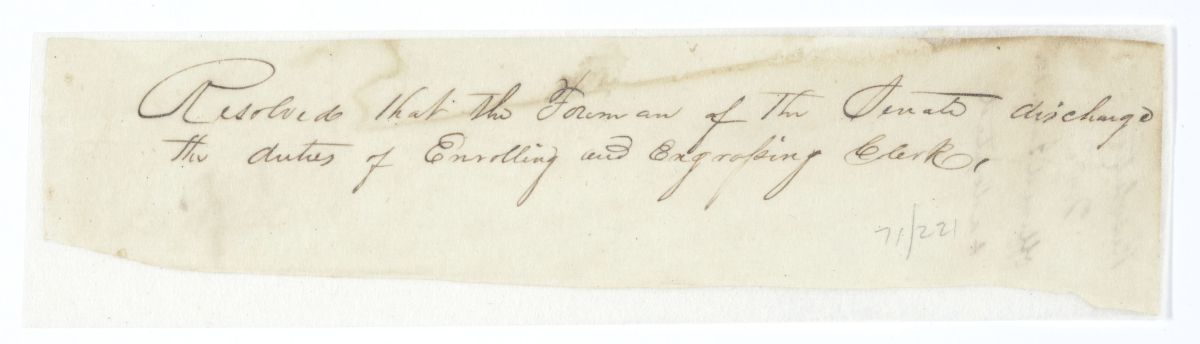 Resolved that the Foreman of the Senate discharge
the duties of Enrolling and Engrossing Clerk.
71/221